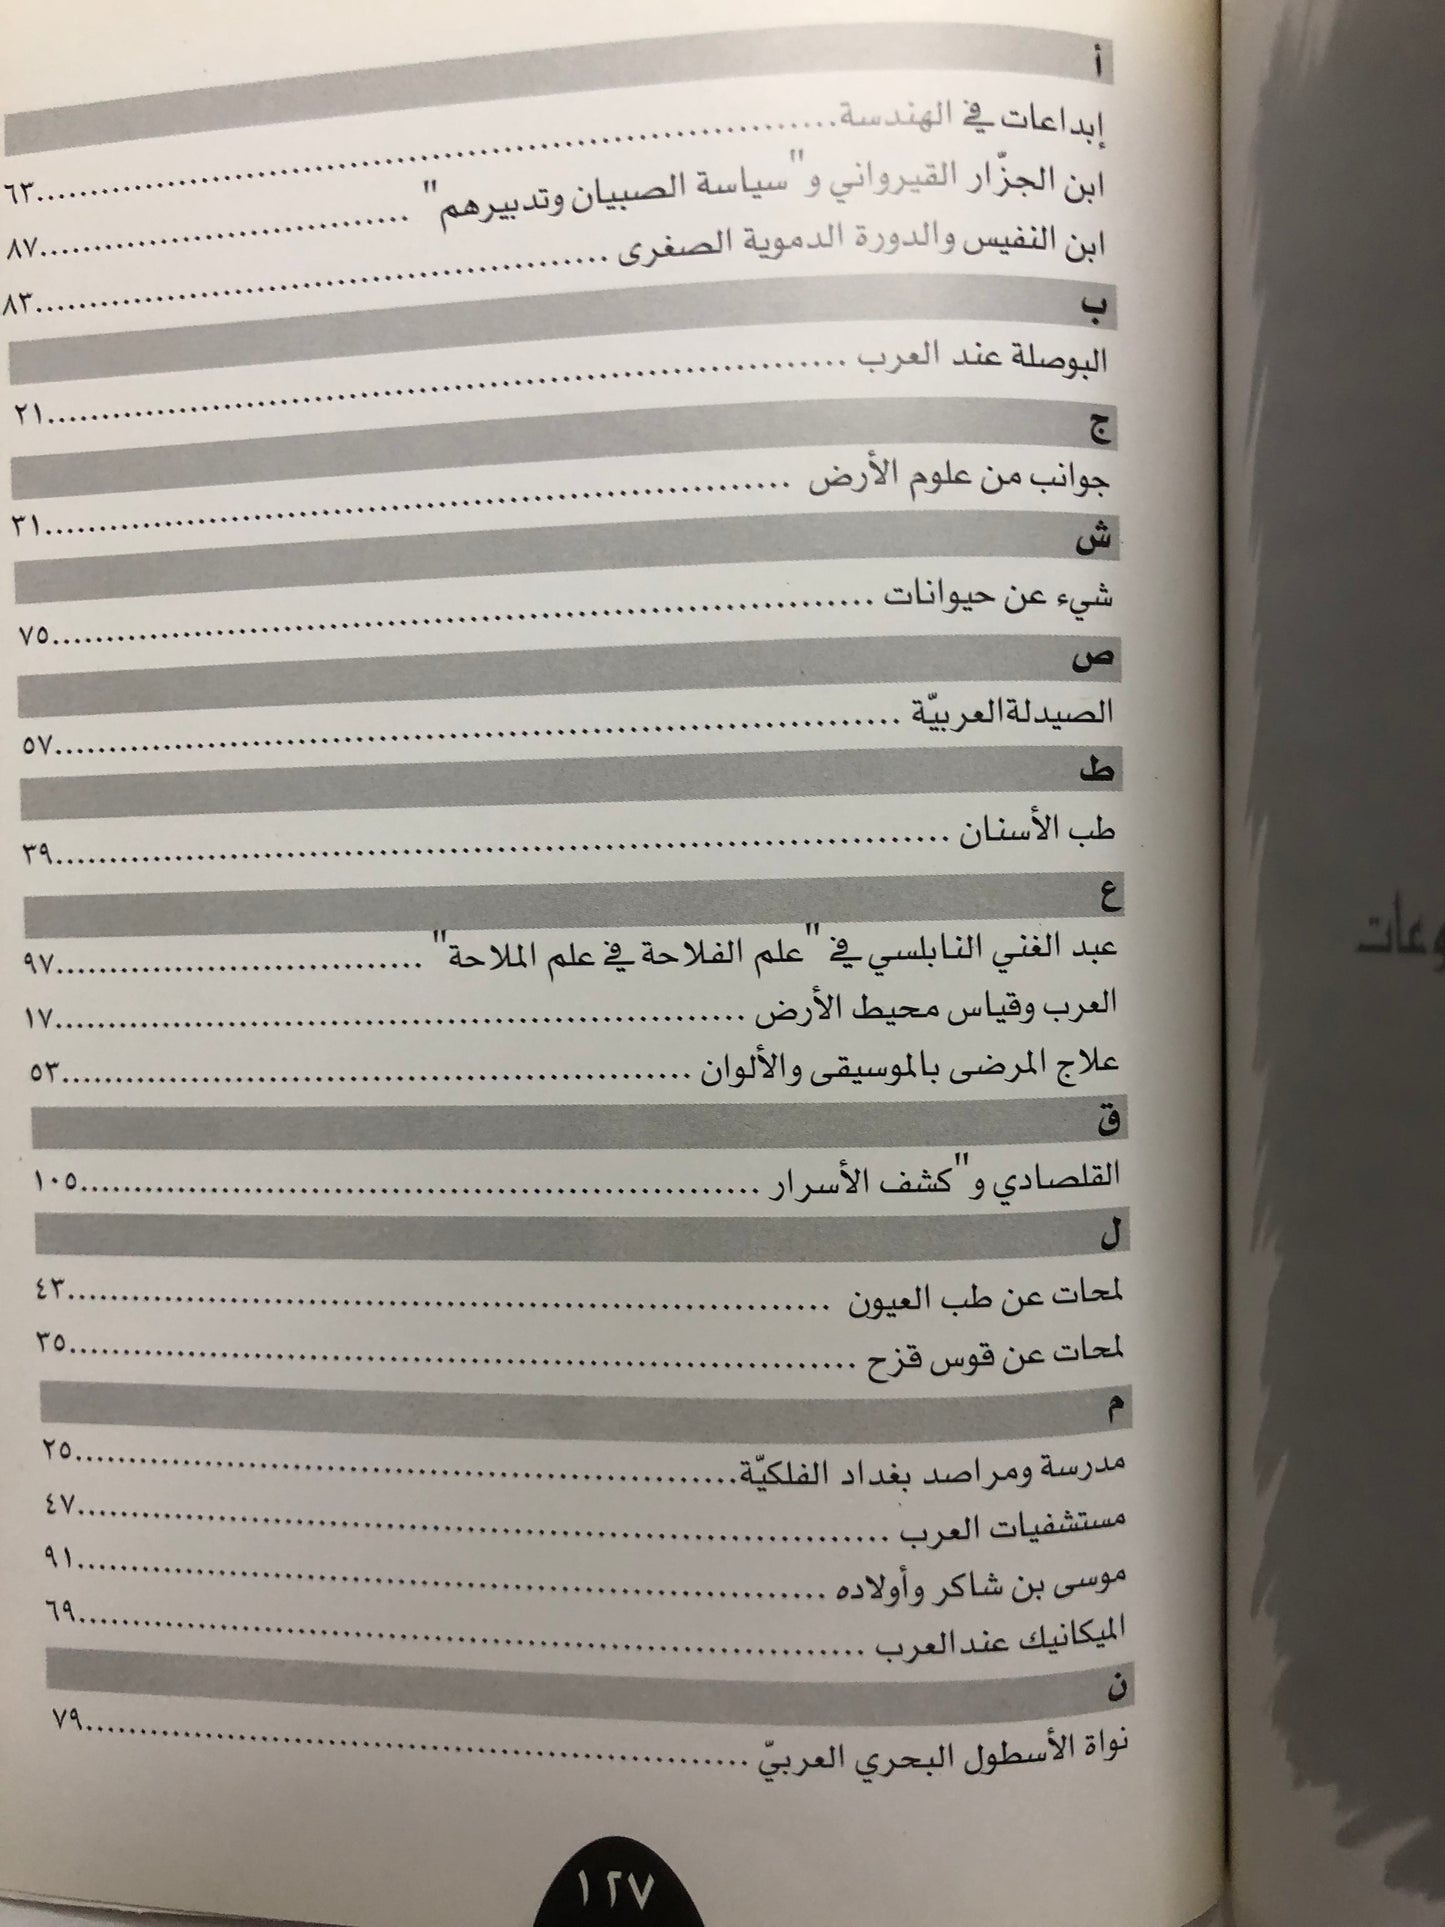 أ
إبداعات في الهندسة..........٦٣
ابن الجزّار القيرواني و"سياسة الصبيان وتدبيرهم" ..........٨٧
ابن النفيس والدورة الدموية الصغرى ..........٨٣
ب
البوصلة عند العرب ..........٢١
ج
جوانب من علوم الأرض ..........٣١
ش
شيء عن حيوانات ..........٧٥
ص
الصيدلة العربيّة ..........٥٧
ط
طب الأسنان ..........٣٩
ع
عبد الغني النابلسي في "علم الفلاحة في علم الملاحة" ..........٩٧
العرب وقياس محيط الأرض ..........١٧
علاج المرضى بالموسيقى والألوان ..........٥٣
ق
القلصادي و"كشف الأسرار ..........١٠٥
ل
لمحات عن طب العيون ..........٤٣
لمحات عن قوس قزح ..........٣٥
م
مدرسة ومراصد بغداد الفلكيّة..........٢٥
مستشفيات العرب ..........٤٧
موسى بن شاكر وأولاده ..........٩١
الميكانيك عند العرب ..........٦٩
ن
نواة الأسطول البحري العربيّ ..........٧٩
١٢٧